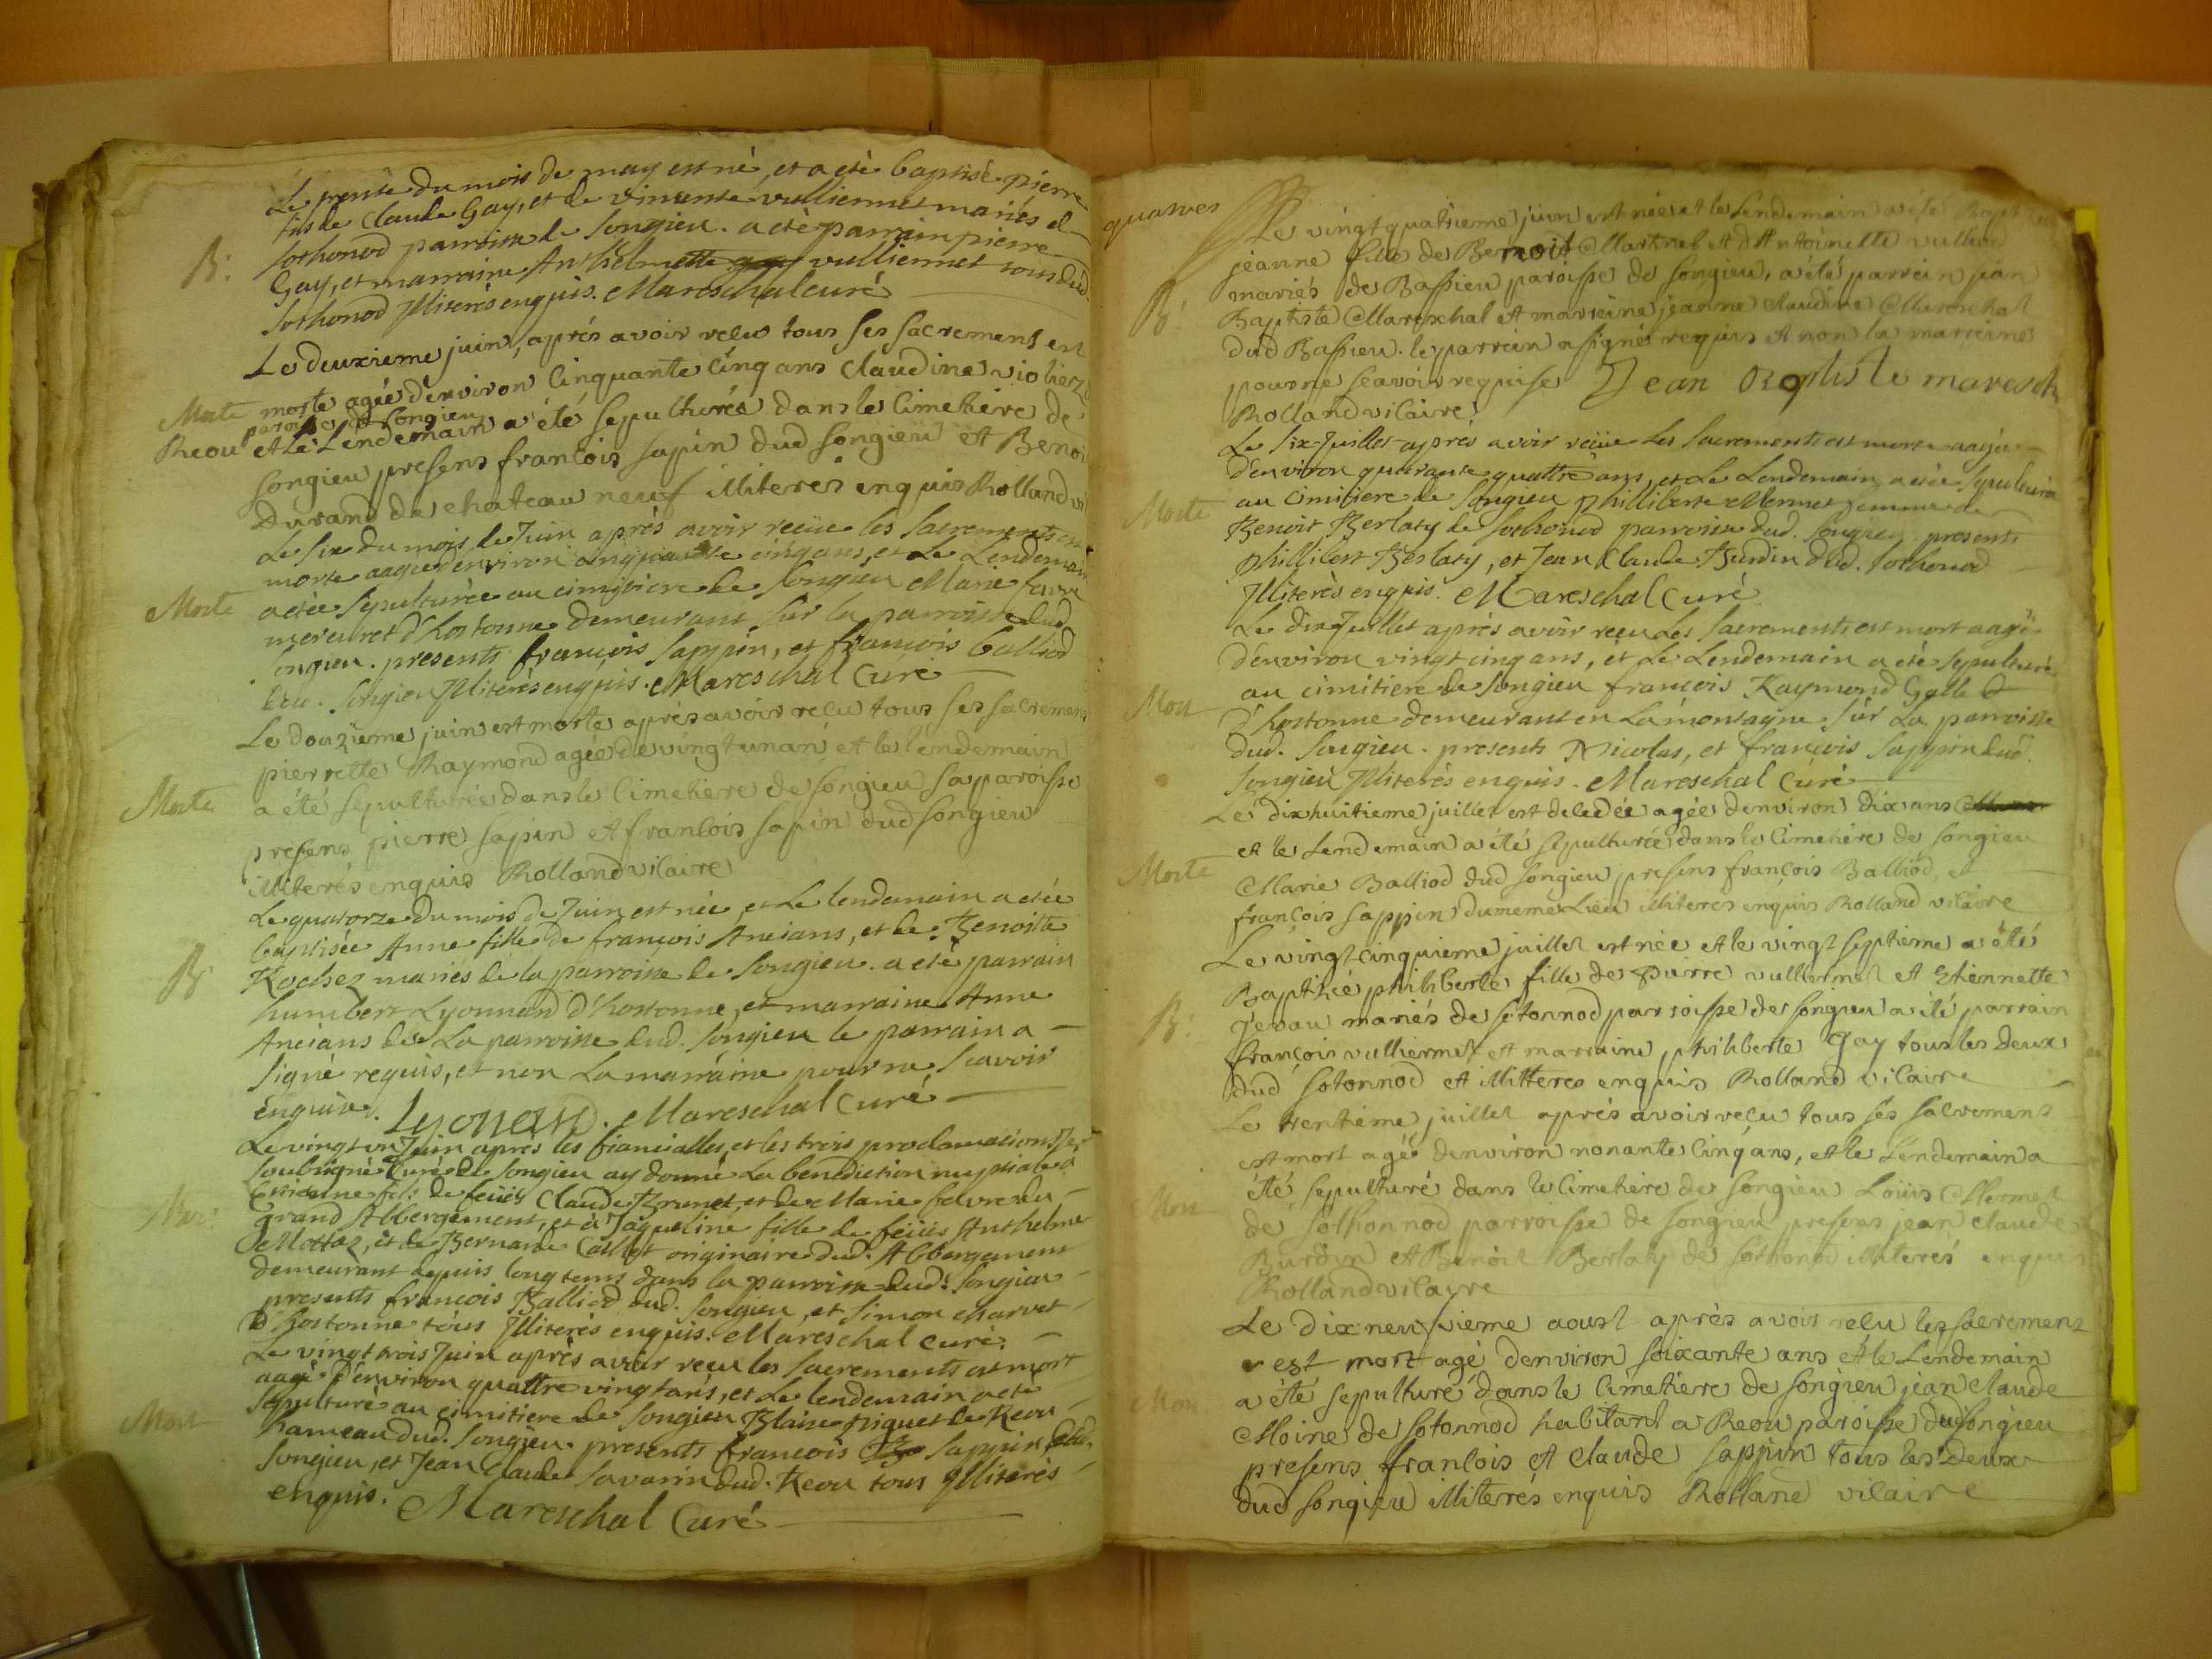 Le trente du mois de may est né, et a eté baptisé pierre
fils de Claude Gay, et de vincente vulliermet mariés de
B:
sothonod parroisse de songieu. a eté parrain pierre
Gay, et marraine Anthelmette vulliermet tous dud.
sothonod Illiterés enquis. Mareschal curé
Le deuxieme juin, aprés avoir reçu tous ses sacremens est
Morte
morte agée denviron cinquante cinq ans Claudine violiez
paroisse de songieu
Reou
et le Lendemain a été sepulturée dans le cimetiere de
songieu, presens françois sapin dud songieu et Benoi
Durand de chateau neuf illiteres enquis Rolland vi
Le six du mois de Juin aprés avoir reçue les sacrements est
morte aagée denviron cinquante cinq ans, et Le Lendemain
Morte
a etée sepulturée au cimitiere de songieu Marie favre
mercuret d'hostonne demeurant sur la parroisse dud
songieu. presents françois sappin, et françois balliod
dud. songieu Illiterés enquis. Mareschal Curé
Le douzieme juin est morte aprés avoir reçu tous ses sacremens
pierrette Raymond agée de vingt un an et le lendemain
Morte
a été sepulturée dans le cimetiere de songieu sa paroisse
presens pierre sapin et françois sapin dud songieu
illiterés enquis Rolland vicaire
Le quatorze du mois de Juin est née, et Le lendemain a etée
baptisée Anne fille de françois Ancians, et de Benoiste
B:
Rochez mariés de la parroisse de songieu. a eté parrain
humbert Lyonnard d'hostonne, et marraine Anne
Ancians de La parroisse dud. songieu le parrain a
signé requis, et non La marraine pour ne scavoir
enquise. Lyonan. Mareschal Curé
Le vingt un Juin aprés les fiancialles, et les trois proclamations Je
soubsigné Curé de songieu ay donné La benediction nuptiale à
Mar:
Estienne fils de feües Claude Brunet, et de Marie febvre du
grand Abbergement, et à Jaqueline fille de feües Anthelme
Mottaz, et de Bernarde Caillet originaire dud. Abbergement
demeurant depuis longtems dans la parroisse dud. songieu
presents françois Balliod dud. songieu, et simon charvet
d'hostonne tous Illiterés enquis. Mareschal curé.
Le vingt trois Juin aprés avoir reçu les sacrements est mort
aagé d'environ quattre vingt ans, et Le lendemain a eté
Mort
sepulturé au cimitiere de songieu Blaise piquet de Reou
hameau dud. songieu. presents françois sappin dud.
songieu, et Jean Claude savarin dud. Reou tous Illiterés
enquis. Mareschal Curé
quatres
Le vingt quatrieme juin est née et le Lendemain a été Bapt
jeanne fille de Benoit Martinet et d'Antoinette vulliod
B:
mariés de Bassieu paroisse de songieu, a été parrein jean
Baptiste Mareschal et marreine jeanne claudine Mareschal
dud Bassieu. le parrein a signé requis et non la marreine
pour ne scavoir requise Jean Baptiste maresch
Rolland vicaire
Le six Juillet aprés avoir reçüe Les sacrements est morte aagée
d'environ quarante quattre ans, et Le Lendemain a etée sepulturée
Morte
au cimitiere de songieu phillibere Mermet femme de
Benoit Berlaty de sothonod parroisse dud. songieu. presents
phillibert Berlaty, et Jean Claude Burdin dud. sothonod
Illiterés enquis. Mareschal Curé
Le dix Juillet aprés avoir reçu Les sacrements est mort aagé
d'environ vingt cinq ans, et Le Lendemain a eté sepulturé
Mort
au cimitiere de songieu françois Raymond Galle
d'hostonne demeurant en La montagne sur La parroisse
dud. songieu. presents Nicolas, et françois sappin dud.
songieu Illiterés enquis. Mareschal Curé
Le dixhuitieme juillet est decedée agée denviron dix ans
et le Lendemain a été sepulturée dans le cimetiere de songieu
Morte
Marie Balliod dud songieu presens françois Balliod, et
françois sappin du meme Lieu illiteres enquis Rolland vicaire
Le vingt cinquieme juillet est née et le vingt septieme a été
Baptisée philiberte fille de pierre vulliermet et Etiennette
B:
Jevau mariés de sotonnod parroisse de songieu a été parrain
françois vulliermet et marraine philiberte Gay tous les deux
dud sotonnod et illitteres enquis Rolland vicaire
Le trentieme juillet aprés avoir reçu tous ses sacremens
est mort agé denviron nonante cinq ans, et le Lendemain a
Mort
été sepulturé dans le cimetiere de songieu Loüis Mermet
de sothonnod parroisse de songieu presens jean claude
Burdin et Benoit Berlaty de sothonod illiterés enquis
Rolland vicayre
Le dix neuvieme aoust aprés avoir reçu les sacremens
est mort agé denviron soixante ans et le Lendemain
Mort
a été sepulturé dans le cimetiere de songieu jean claude
Moine de sotonnod habitant a Reou paroisse dud songieu
presens françois et claude sappin tous les deux
dud songieu illiterés enquis Rolland vicaire